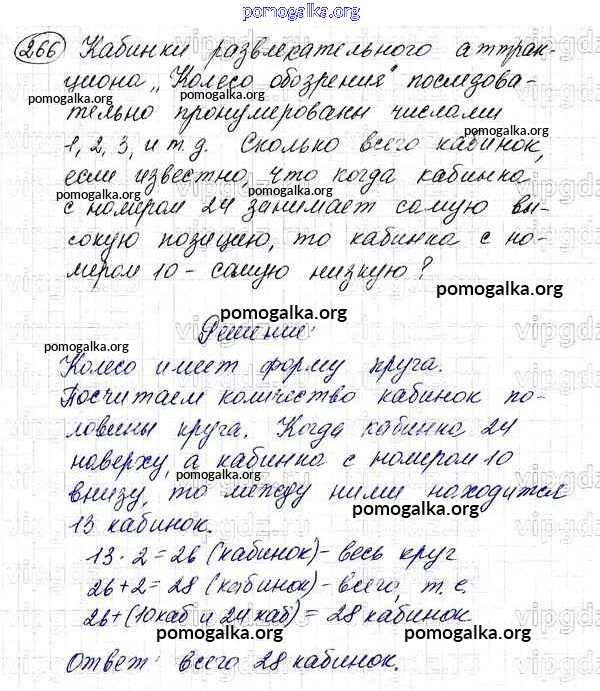 pomogalka.org
266 Кабинки развлекательного аттрак-
циона „Колесо обозрения" последова-
pomogalka.org
тельно пронумерованы числами
pomogalka.org
1, 2, 3, и т.д. Сколько всего кабинок,
pomogalka.org
если известно, что когда кабинка
pomogalka.org
с номером 24 занимает самую вы-
сокую позицию, то кабинка с но-
pomogalka.org
мером 10 - самую низкую?
pomogalka.org
pomogalka.org
Решение:
pomogalka.org
Колесо имеет форму круга.
Посчитаем количество кабинок по-
pomogalka.org
ловины круга. Когда кабинка 24
наверху, а кабинка с номером 10
pomogalka.org
внизу, то между ними находится
13 кабинок.
pomogalka.org
13 · 2 = 26 (кабинок) - весь круг
26 + 2 = 28 (кабинок) - всего, т. е.
26 + (10 каб и 24 каб) = 28 кабинок
pomogalka.org
pomogalka.org
Ответ: всего 28 кабинок.
pomogalka.org
vipgdz.ru